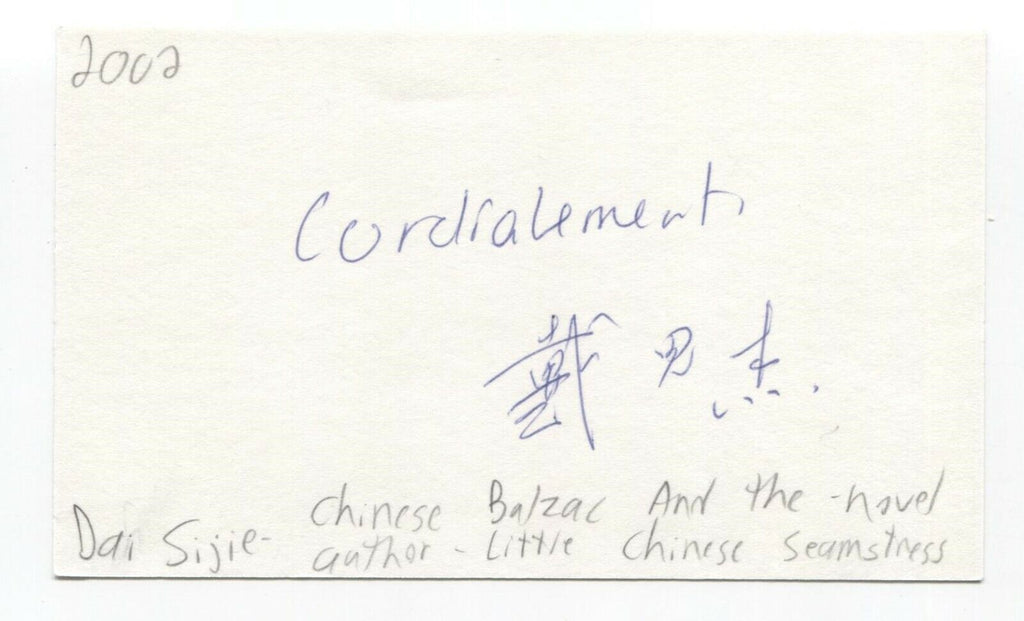 2002
Cordialement,
戴思杰.
Dai Sijie - Chinese Balzac And the - novel
author - Little Chinese Seamstress